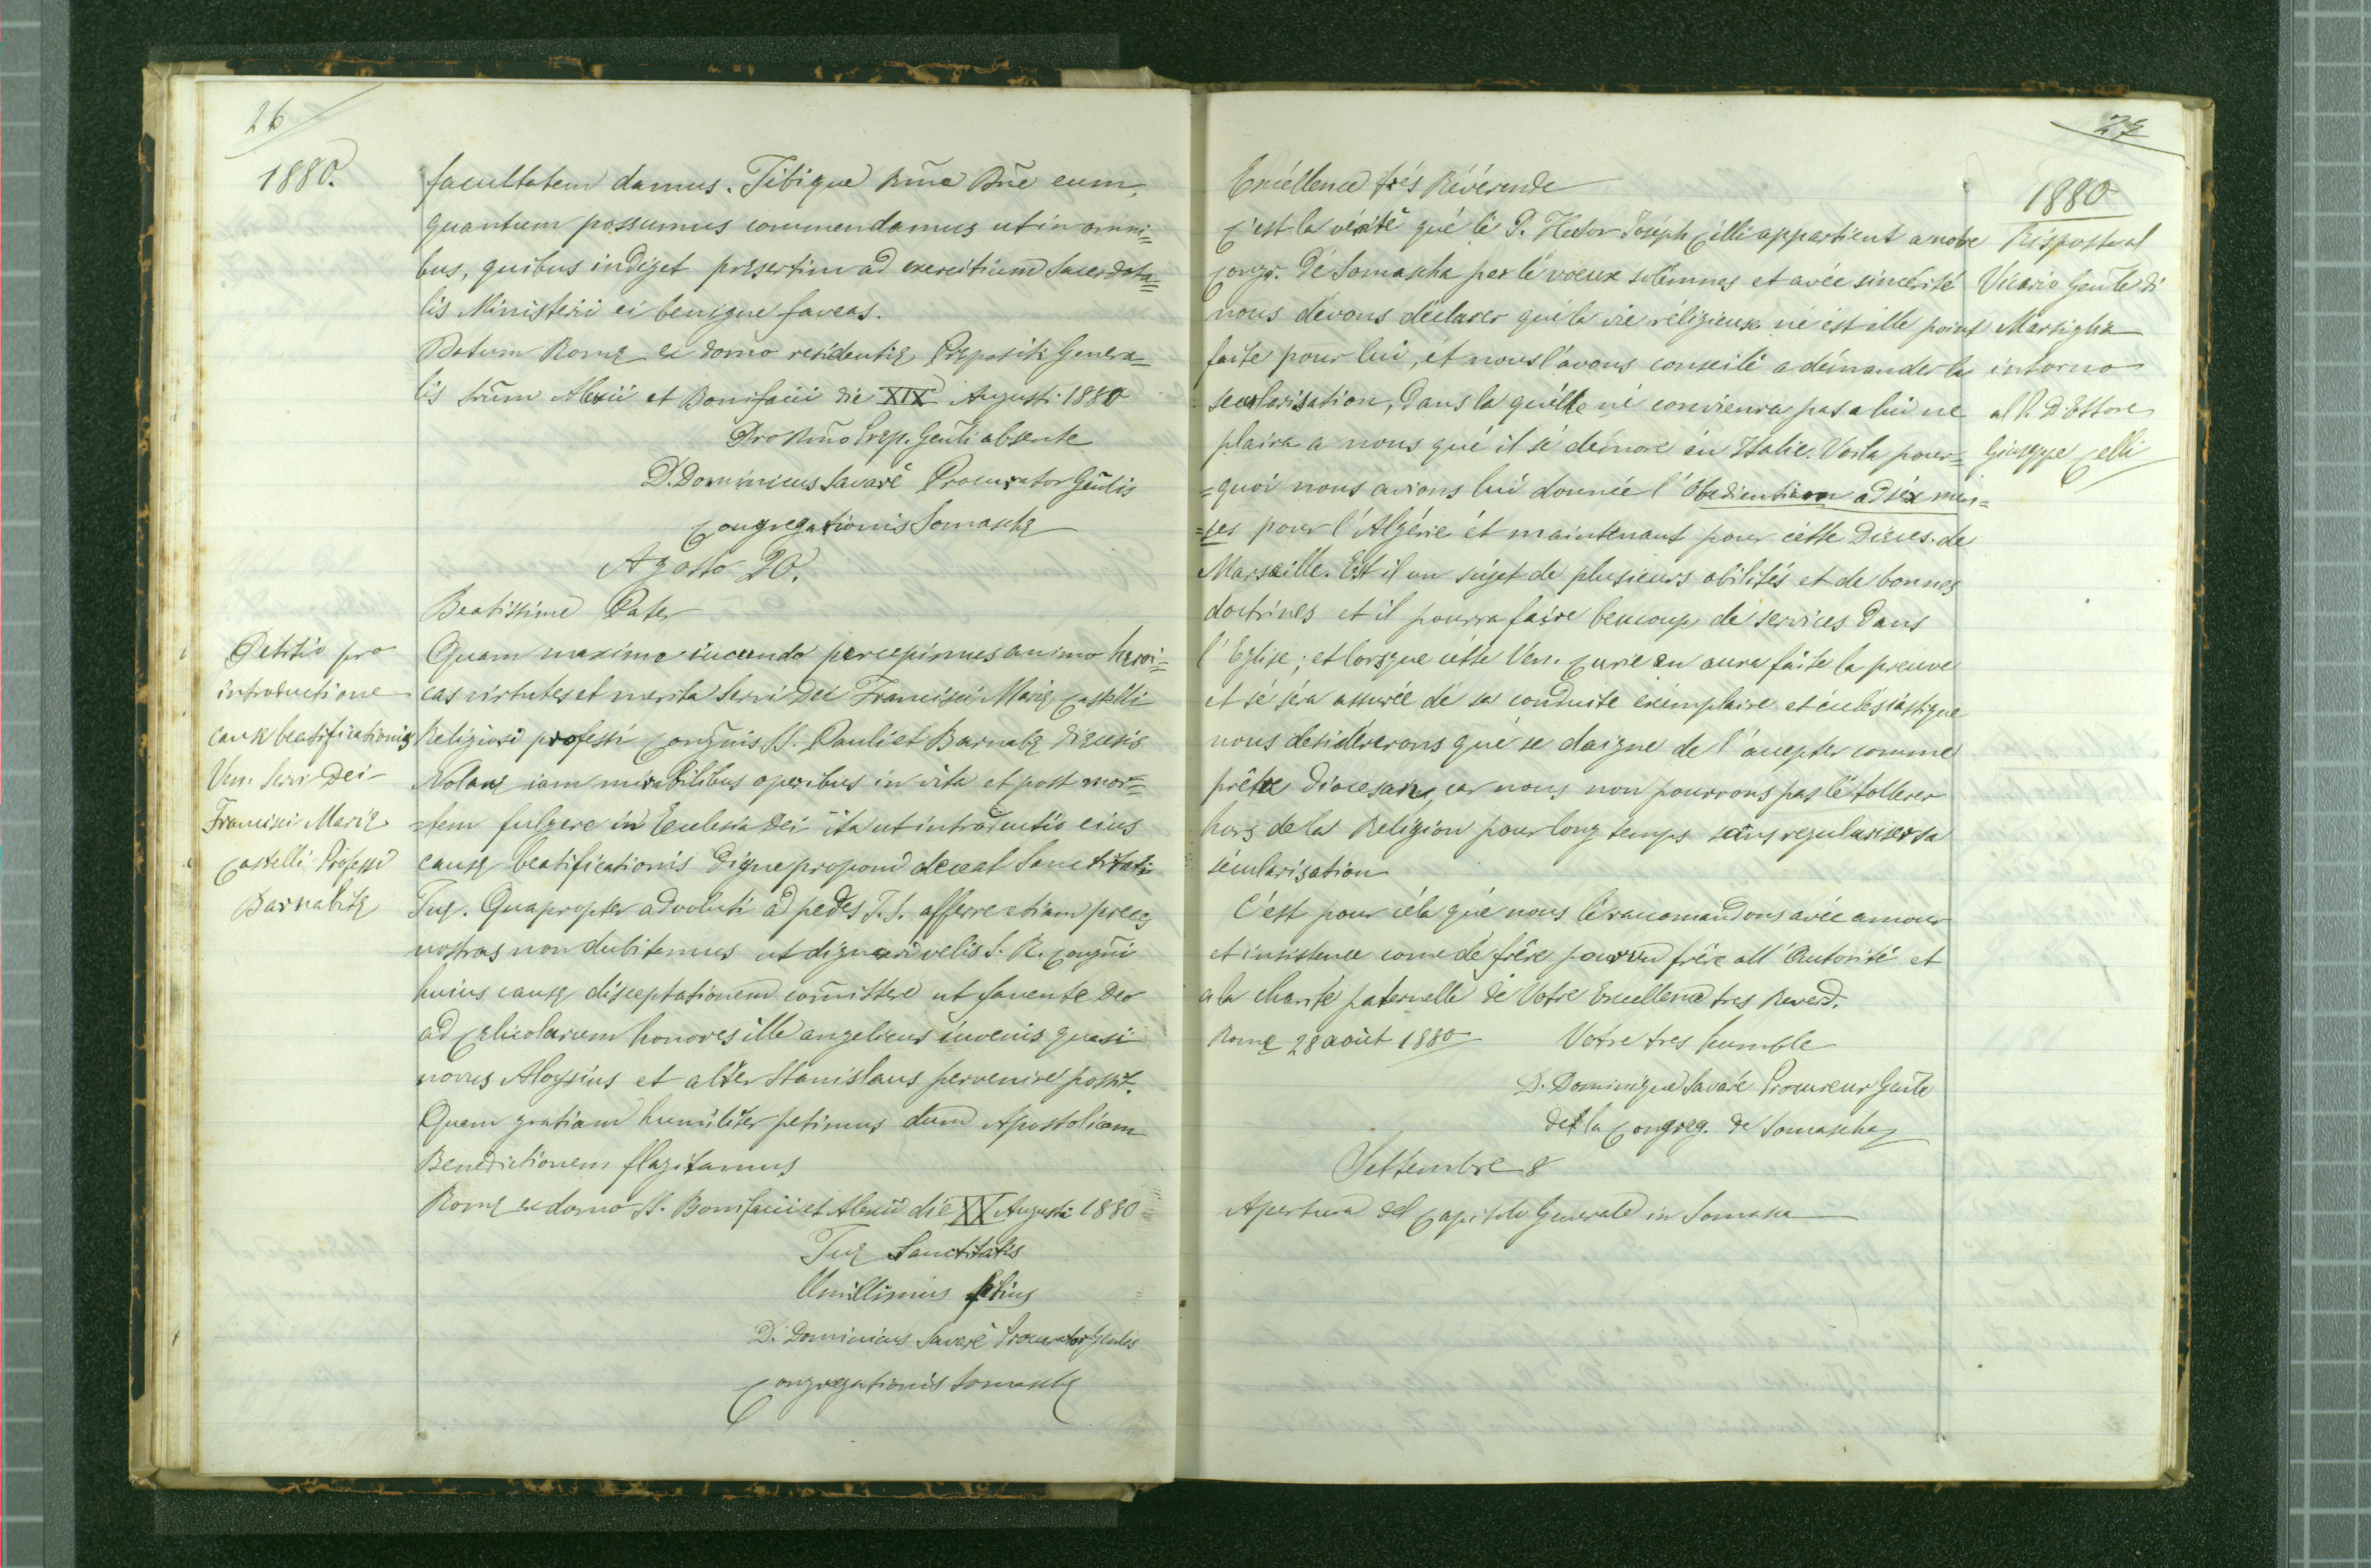 26
1880.
facultatem damus. Tibique Rm̃e Dñe eum,
quantum possumus commendamus ut in omni=
bus, quibus indiget presertim ad exercitium Sacerdota=
lis Ministeri ei benigne faveas.
Datum Romę ex domo residentię Prępositi Genera=
lis Srũm Alexii et Bonifacii die XIX Augusti 1880
Pro Rm̃o Prep. Genl̃i absente
D. Dominicus Savarè Procurator Gen̄lis
Congregationis Somaschę
Agosto 20.
Beatissime Pater
Petitio pro
introductione
causę beatificationis
Ven. Servi Dei
Francisci Marię
Castelli Professi
Barnabitę
Quam maxime iucundo percepimus animo heroi=
cas virtutes et merita Servi Dei Francisci Marię Castelli
Religiosi professi Congñis SS. Pauli et Barnabę Dięcesis
Nolanę iam mirabilibus operibus in vita et post mor=
=tem fulgere in Ecclesia Dei ita ut introductio eius
causę beatificationis digne proponi deceat Sanctitati
Tuę. Quapropter advoluti ad pedes T. S. afferre etiam preces
nostras non dubitamus ut dignari velis S. R. Congñi
huius causę disceptationem com̃ittere ut favente Deo
ad Cęlicolarum honores ille angelicus iuvenis quasi
novus Aloysius et alter Stanislaus pervenire possit.
Quam gratiam humiliter petimus dum Apostolicam
Benedictionem flagitamus
Romę ex domo SS. Bonifacii et Alexii die XX Augusti 1880
Tuę Sanctitatis
Umillimus filius
D. Dominicus Savarè Procurator Genlis
Congregationis Somaschę
27
1880
Risposta al
Vicario Genl̃e di
Marsiglia
intorno
al P. D. Ettore
Giuseppe Celli
Excéllence trés Révérende
C'est la vérité qué lé P. Hector Joséph Cilli appartient a notre
Congr. dé Somascha par lé voeux solémnes et avéc sincérité
nous dévons déclarer qué la vie réligieuse né ést élle point
faite pour lui, ét nous l'avons conseilé a démander la
secularisation, dans la quélle né conviendra pas a lui ne
plaira a nous qué il sé démore én Italie. Voila pour=
=quoi nous avions lui donnée l'Obedientiam ad séx men=
=ses pour l'Algérie ét maintenant pour cétte Dioces. de
Marseille. Est il un sujet de plusieurs abilités et de bonnes
doctrines et il pourra faire beucoup de services dans
l'Eglise; et lorsque cétte Ven. Curie en aura faite la preuve
et sé séra assurée dé sa conduite éxémplaire et éclésiastique
nous desidérerons qué se daigne de l'accepter comme
prêtre diocesain, car nous non pourrons pas lé tollerer
hors de la Religion pour long temps sans regulariser sa
sécularisation
C'est pour céla qué nous lé racomandons avéc amour
et insistence come dé frére pour un frére all'Autorité et
a la charité paternelle de Votre Excellence tres Reverd.
Rome 28 août 1880
Votre tres humble
D. Dominique Savaré Procureur Genl̃e
de la Congreg. de Somascha
Settembre 8
Apertura del Capitolo Generale in Somasca